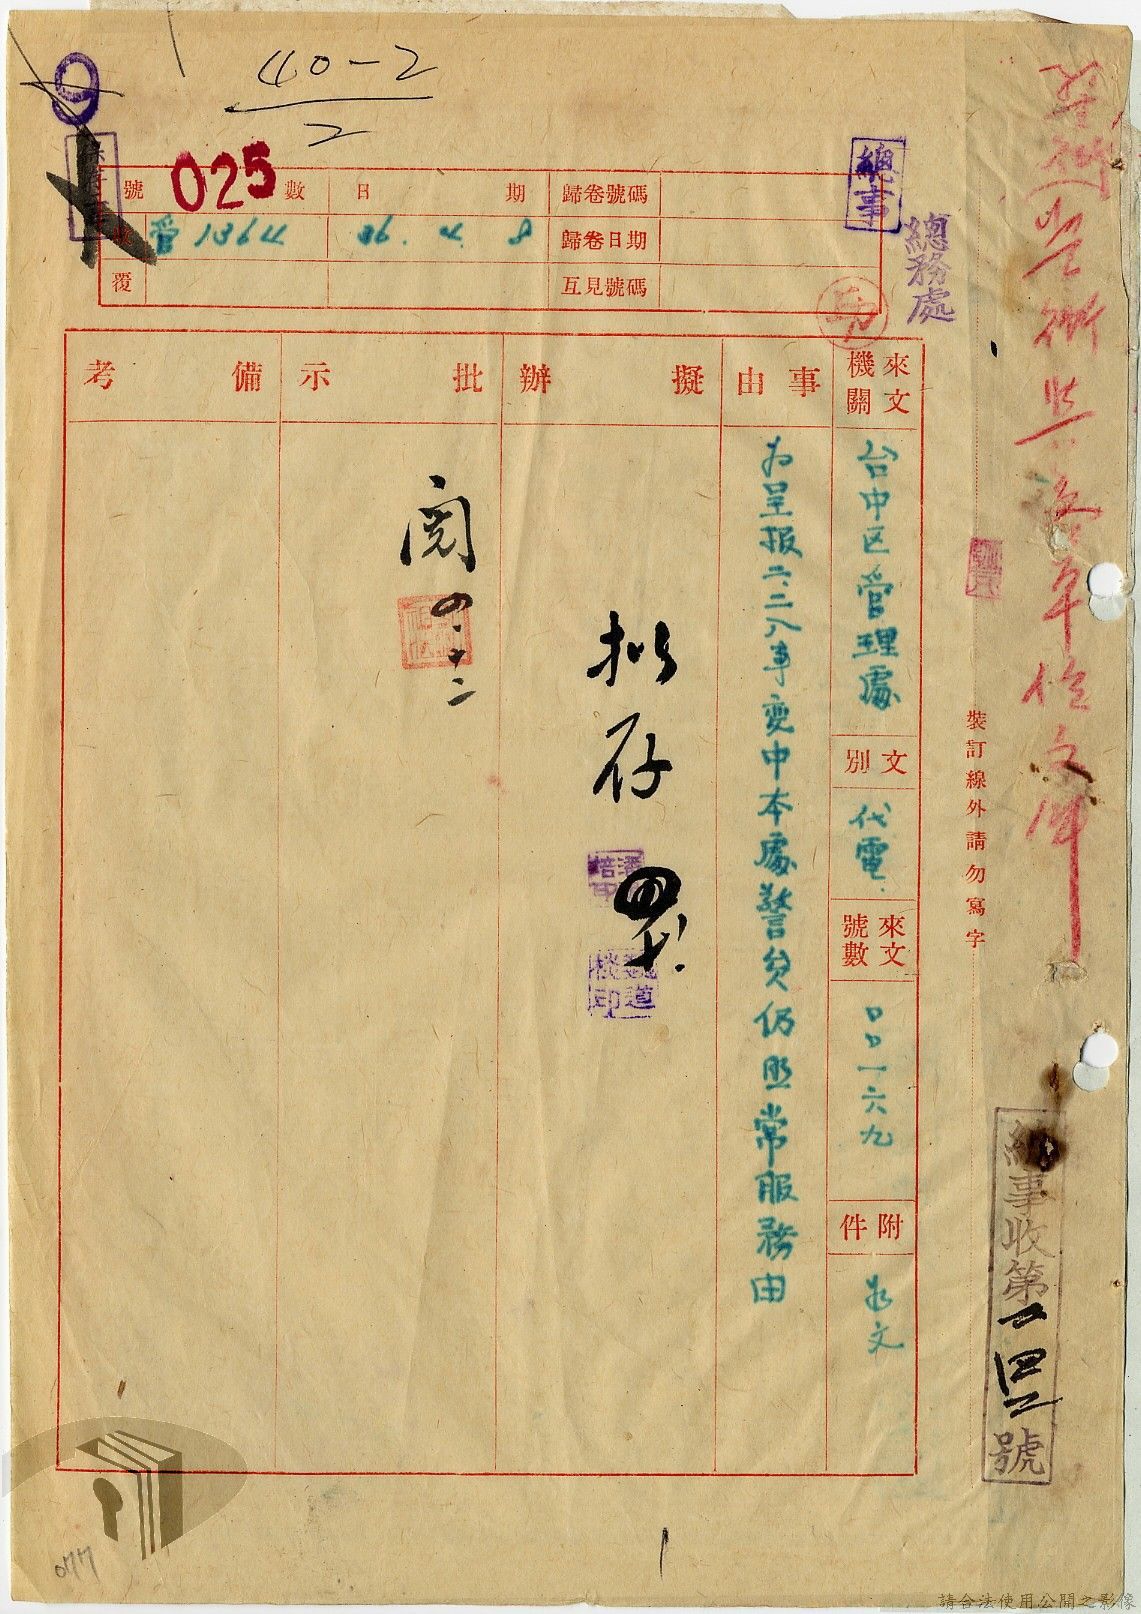 40-2
2
025
號 數 日 期 歸卷號碼
收 管1364 36.4.8 歸卷日期
覆 互見號碼
總事
總務處
來文機關 台中区管理處
文別 代電
來文號數 一六九
附件 文
事由 为呈报二.二八事变中本處警員仍照常服務由
擬辦 拟存
批示 閱 四.十二
備考
裝訂線外請勿寫字
總事收第一四二號
077
請合法使用公開之影像